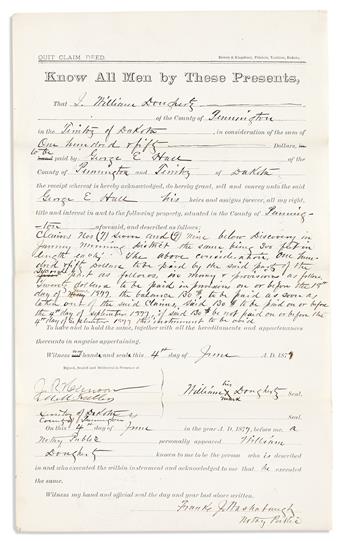 QUIT CLAIM DEED.
Bowen & Kingsbury, Printers, Yankton, Dakota.
Know All Men by These Presents,
That I William Dougherty
of the County of Pennington
in the Territory of Dakota , in consideration of the sum of
One hundred & fifty Dollars,
to be paid by George E Hall of the
County of Pennington and Territory of Dakota
the receipt whereof is hereby acknowledged, do hereby grant, sell and convey unto the said
George E Hall his heirs and assigns forever, all my right,
title and interest in and to the following property, situated in the County of Penning-
ton aforesaid, and described as follows:
Claims Nos (7) Seven and (9) Nine below Discovery in
mining district the same being 300 feet in
length each. The above consideration One hun-
dred & fifty dollars to be paid by the said party of the
Second part as follows, in money & provisions as follows
Twenty dollars to be paid in provision on or before the 18th
day of 1877. the balance 130$ to be paid as soon as
taken out of the said Claims, said 130$ to be paid on or before
the 4th day of September 1877, if said 130$ be not paid on or before the
4th day of September 1877 this instrument to be void
To have and to hold the same, together with all the hereditaments and appurtenances
thereunto in anywise appertaining.
Witness my hand and seal this 4th day of June A. D. 1877
Signed, Sealed and Delivered in Presence of
William his mark Dougherty Seal.
Seal.
Territory of Dakota ss
County of Pennington
On this 4th day of June in the year A. D. 1877, before me a
Notary Public personally appeared William
Dougherty known to me to be the person who is described
in and who executed the within instrument and acknowledged to me that he executed
the same.
Witness my hand and official seal the day and year last above written.
Frank J Washabaugh
Notary Public